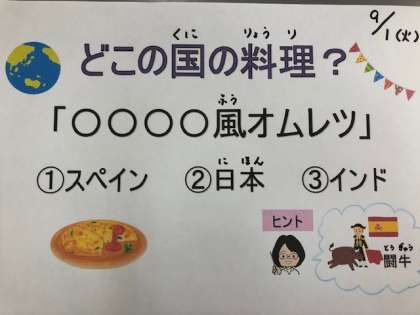 9/1(火)
どこの国の料理？
くに りょうり
「〇〇〇〇風オムレツ」
ふう
①スペイン ②日本 ③インド
にほん
ヒント
闘牛
とうぎゅう